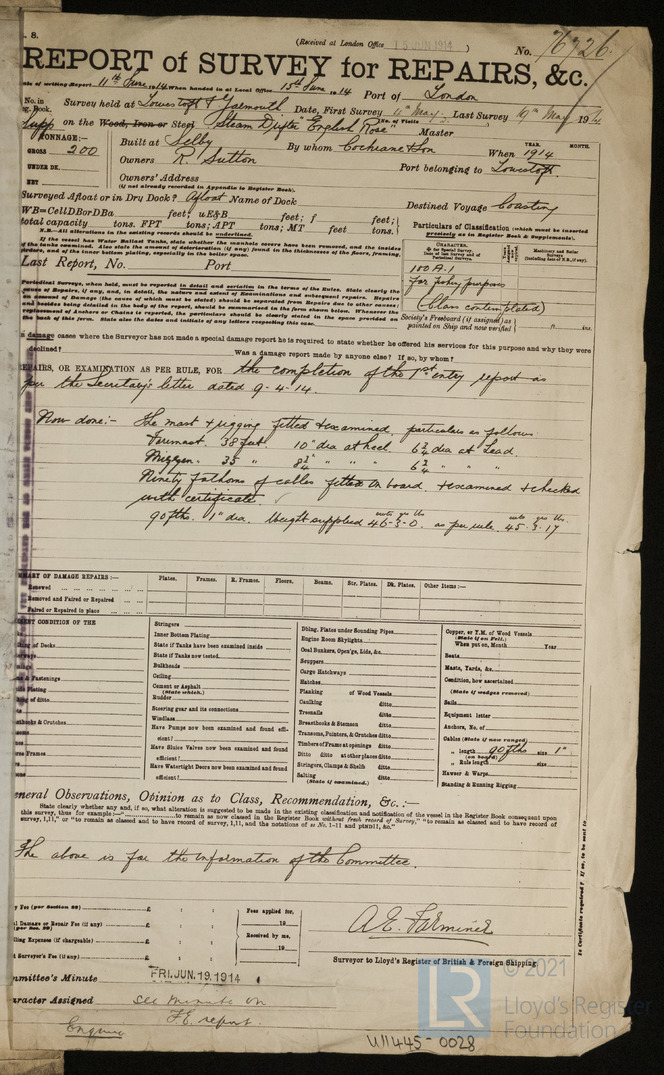 . 8.
(Received at London Office 15 JUN 1914 )
No. 76726.
REPORT of SURVEY for REPAIRS, &c.
ate of writing Report 11th June 1914. When handed in at Local Office 15th June 1914 Port of London
No. in Survey held at Lowestoft & Yarmouth Date, First Survey 11th May Last Survey 19th May 1914
Book. (No. of Visits )
supp on the Wood, Iron or Steel Steam Drifter "English Rose" Master
TONNAGE:— Built at Selby By whom Cochrane & Son When 1914
YEAR. MONTH.
GROSS 200 Owners R. Sutton Port belonging to Lowestoft.
UNDER DK. Owners' Address
NET (if not already recorded in Appendix to Register Book).
Surveyed Afloat or in Dry Dock? Afloat Name of Dock Destined Voyage Coasting
WB=CellDBorDBa feet; uE&B feet; f feet;
total capacity tons. FPT tons; APT tons; MT feet tons.
N.B.—All alterations in the existing records should be underlined.
If the vessel has Water Ballast Tanks, state whether the manhole covers have been removed, and the insides
of the tanks examined. Also state the amount of deterioration (if any) found in the thicknesses of the floors, framing,
Last Report, No. Port
Particulars of Classification (which must be inserted
precisely as in Register Book & Supplements).
CHARACTER.
100 A.1
For fishing purposes
(Class contemplated)
Society's Freeboard (if assigned) as
painted on Ship and now verified ft. ins.
Periodical Surveys, when held, must be reported in detail and seriatim in the terms of the Rules. State clearly the
damage cases where the Surveyor has not made a special damage report he is required to state whether he offered his services for this purpose and why they were
declined? Was a damage report made by anyone else? If so, by whom?
EPAIRS, OR EXAMINATION AS PER RULE, FOR the completion of the 1st entry report as
per the Secretary's letter dated 9-4-14.
Now done:- The mast & rigging fitted & examined, particulars as follows.
Foremast. 38 feet. 10" dia at heel. 6 3/4 dia at head.
Mizzen. 35 " 8 3/4 " " " 6 3/4 " " "
Ninety fathoms of cables fitted on board. & examined & checked
with certificate. ✓
90 fths. 1" dia. Weight supplied 46-3-0. as per rule. 45-3-17
cwts qrs lbs cwts qrs lbs.
MMARY OF DAMAGE REPAIRS:— Plates. Frames. R. Frames. Floors. Beams. Str. Plates. Dk. Plates. Other Items:—
Renewed
Removed and Faired or Repaired
Faired or Repaired in place
ESENT CONDITION OF THE
ing of Decks.
& Fastenings
Plating
ng of ditto
& Crutches
Frames
Stringers
Inner Bottom Plating
State if Tanks have been examined inside
State if Tanks now tested
Bulkheads
Ceiling
Cement or Asphalt
(State which.)
Rudder
Steering gear and its connections
Windlass
Have Pumps now been examined and found effi-
cient?
Have Sluice Valves now been examined and found
efficient?
Have Watertight Doors now been examined and found
efficient?
Dblng. Plates under Sounding Pipes
Engine Room Skylights
Coal Bunkers, Open'gs, Lids, &c.
Scuppers
Cargo Hatchways
Hatches
Planking of Wood Vessels
Caulking ditto
Treenails ditto
Breasthooks & Stemson ditto
Transoms, Pointers, & Crutches ditto
Timbers of Frame at openings ditto
Ditto ditto at other places ditto
Stringers, Clamps & Shelfs ditto
Salting ditto
(State if examined.)
Copper, or Y.M. of Wood Vessels
(State if on Felt.)
When put on, Month Year
Boats
Masts, Yards, &c.
Condition, how ascertained
(State if wedges removed)
Sails
Equipment letter
Anchors, No. of
Cables (State if now ranged)
" length 90 fths size 1"
(on board)
" Rule length size
Hawser & Warps
Standing & Running Rigging
neral Observations, Opinion as to Class, Recommendation, &c.:—
State clearly whether any and, if so, what alteration is suggested to be made in the existing classification and notification of the vessel in the Register Book consequent upon
this survey, thus for example:—"..........to remain as now classed in the Register Book without fresh record of Survey," "to remain as classed and to have record of
survey, 1,11," or "to remain as classed and to have record of survey, 1,11, and the notations of ss No. 1-11 and ptND11, &c."
The above is for the information of the Committee.
y Fee (per Section 28) £ : : Fees applied for,
l Damage or Repair Fee (if any) £ : : 19
(per Sec. 28)
lling Expenses (if chargeable) £ : : Received by me,
t Surveyor's Fee (if any) £ : : 19
A E. Farminer
Surveyor to Lloyd's Register of British & Foreign Shipping.
mmittee's Minute FRI. JUN. 19. 1914
aracter Assigned See minute on
F.E. report.
© 2021
LR
Lloyd's Register
Foundation
U11445-0028